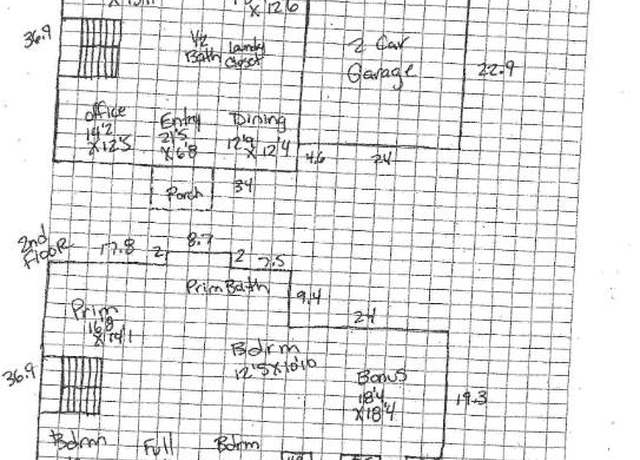 X 12'6
36.9
1/2
Bath
Laundy
Closet
2 Car
Garage
22.9
office
14'2
X 12'5
Entry
21'5
X 6'8
Dining
12'9
X 12'4
4.6
24
Porch
34
2nd
Floor
17.8
2
8.7
2
7.5
Prim Bath
9.4
24
Prim
16'8
X 14'1
Bdrm
12'5 X 10'10
Bonus
18'4
X 18'4
36.9
19.3
Bdrm
Full
Bdrm